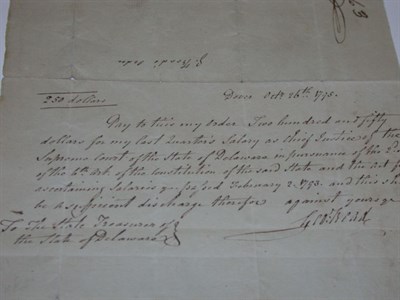 250 dollars
Dover Octr 26th 1795.
Pay to this my order Two hundred and fifty
dollars for my last Quarters Salary as Chief Justice of the
Supreme Court of the State of Delaware in pursuance of the
of the 6th Art. of the Constitution of the said State and the Act for
ascertaining Salaries passed February 2. 1793. and this sh
be a sufficient discharge therefor against yours
Geo: Read
To The State Treasurer of
the State of Delaware